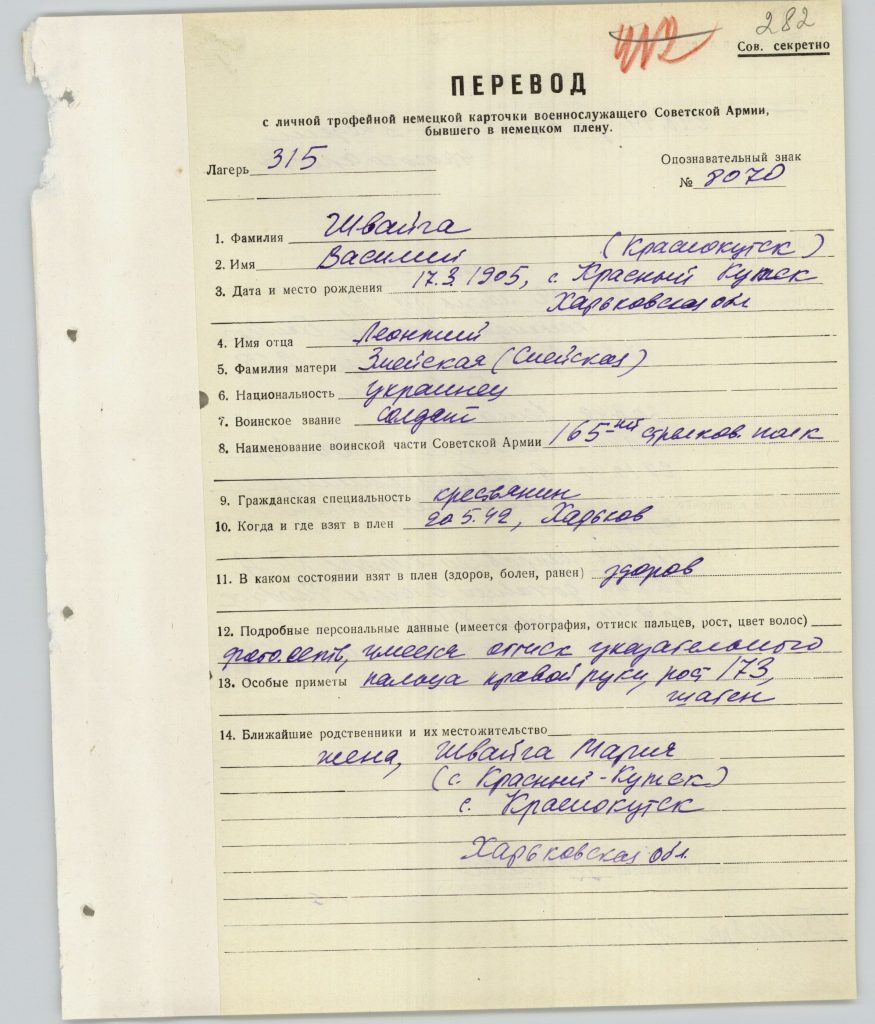 282
Сов. секретно
ПЕРЕВОД
с личной трофейной немецкой карточки военнослужащего Советской Армии,
бывшего в немецком плену.
Лагерь 315
Опознавательный знак
№ 8070
1. Фамилия Швайга
2. Имя Василий (Краснокутск)
3. Дата и место рождения 17.3.1905, с. Красный Кутск
Харьковская обл
4. Имя отца Леонтий
5. Фамилия матери Змейская (Смейская)
6. Национальность украинец
7. Воинское звание солдат
8. Наименование воинской части Советской Армии 165ый стрелков. полк
9. Гражданская специальность крестьянин
10. Когда и где взят в плен 20.5.42, Харьков
11. В каком состоянии взят в плен (здоров, болен, ранен) здоров
12. Подробные персональные данные (имеется фотография, оттиск пальцев, рост, цвет волос)
фото есть, имеется оттиск указательного
13. Особые приметы пальца правой руки, рост 173,
шатен
14. Ближайшие родственники и их местожительство
жена, Швайга Мария
(с. Красный-Кутск)
с. Краснокутск
Харьковская обл.